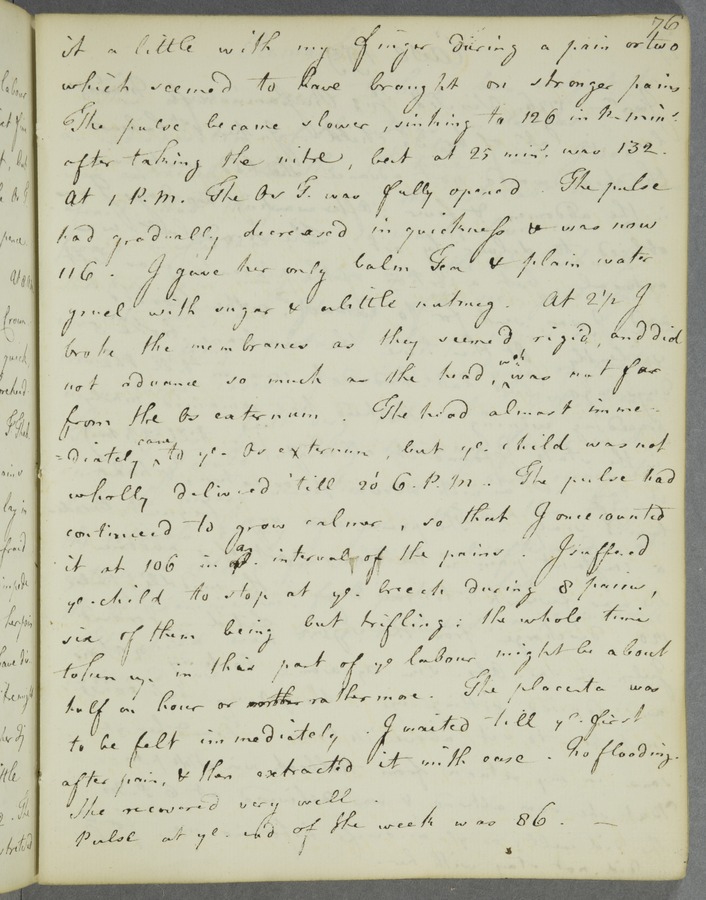 76
it a little with my finger during a pain or two
which seemed to have brought on stronger pains
The pulse became slower, sinking to 126 in 12 min:
after taking the nitre, but at 25 min: was 132.
At 1 P.M. The Os T. was fully opened. The pulse
had gradually decreased in quickness & was now
116. I gave her only balm Tea & plain water
gruel with sugar & a little nutmeg. At 2 1/2 I
broke the membranes as they seemed rigid, and did
not advance so much as the head, wch was not far
from the Os externum. The head almost imme-
=diately came to ye. Os externum, but ye. child was not
wholly delivered 'till 20' 6. P.M. The pulse had
continued to grow calmer, so that I once counted
it at 106 in an interval of the pains. I suffered
ye. child to stop at ye. breech during 8 pains,
six of them being but trifling: the whole time
taken up in this part of ye labour might be about
half an hour or rather more. The placenta was
to be felt immediately. I waited till ye. first
after pain, & then extracted it with ease. No flooding.
She recovered very well.
Pulse at ye. end of the week was 86. —